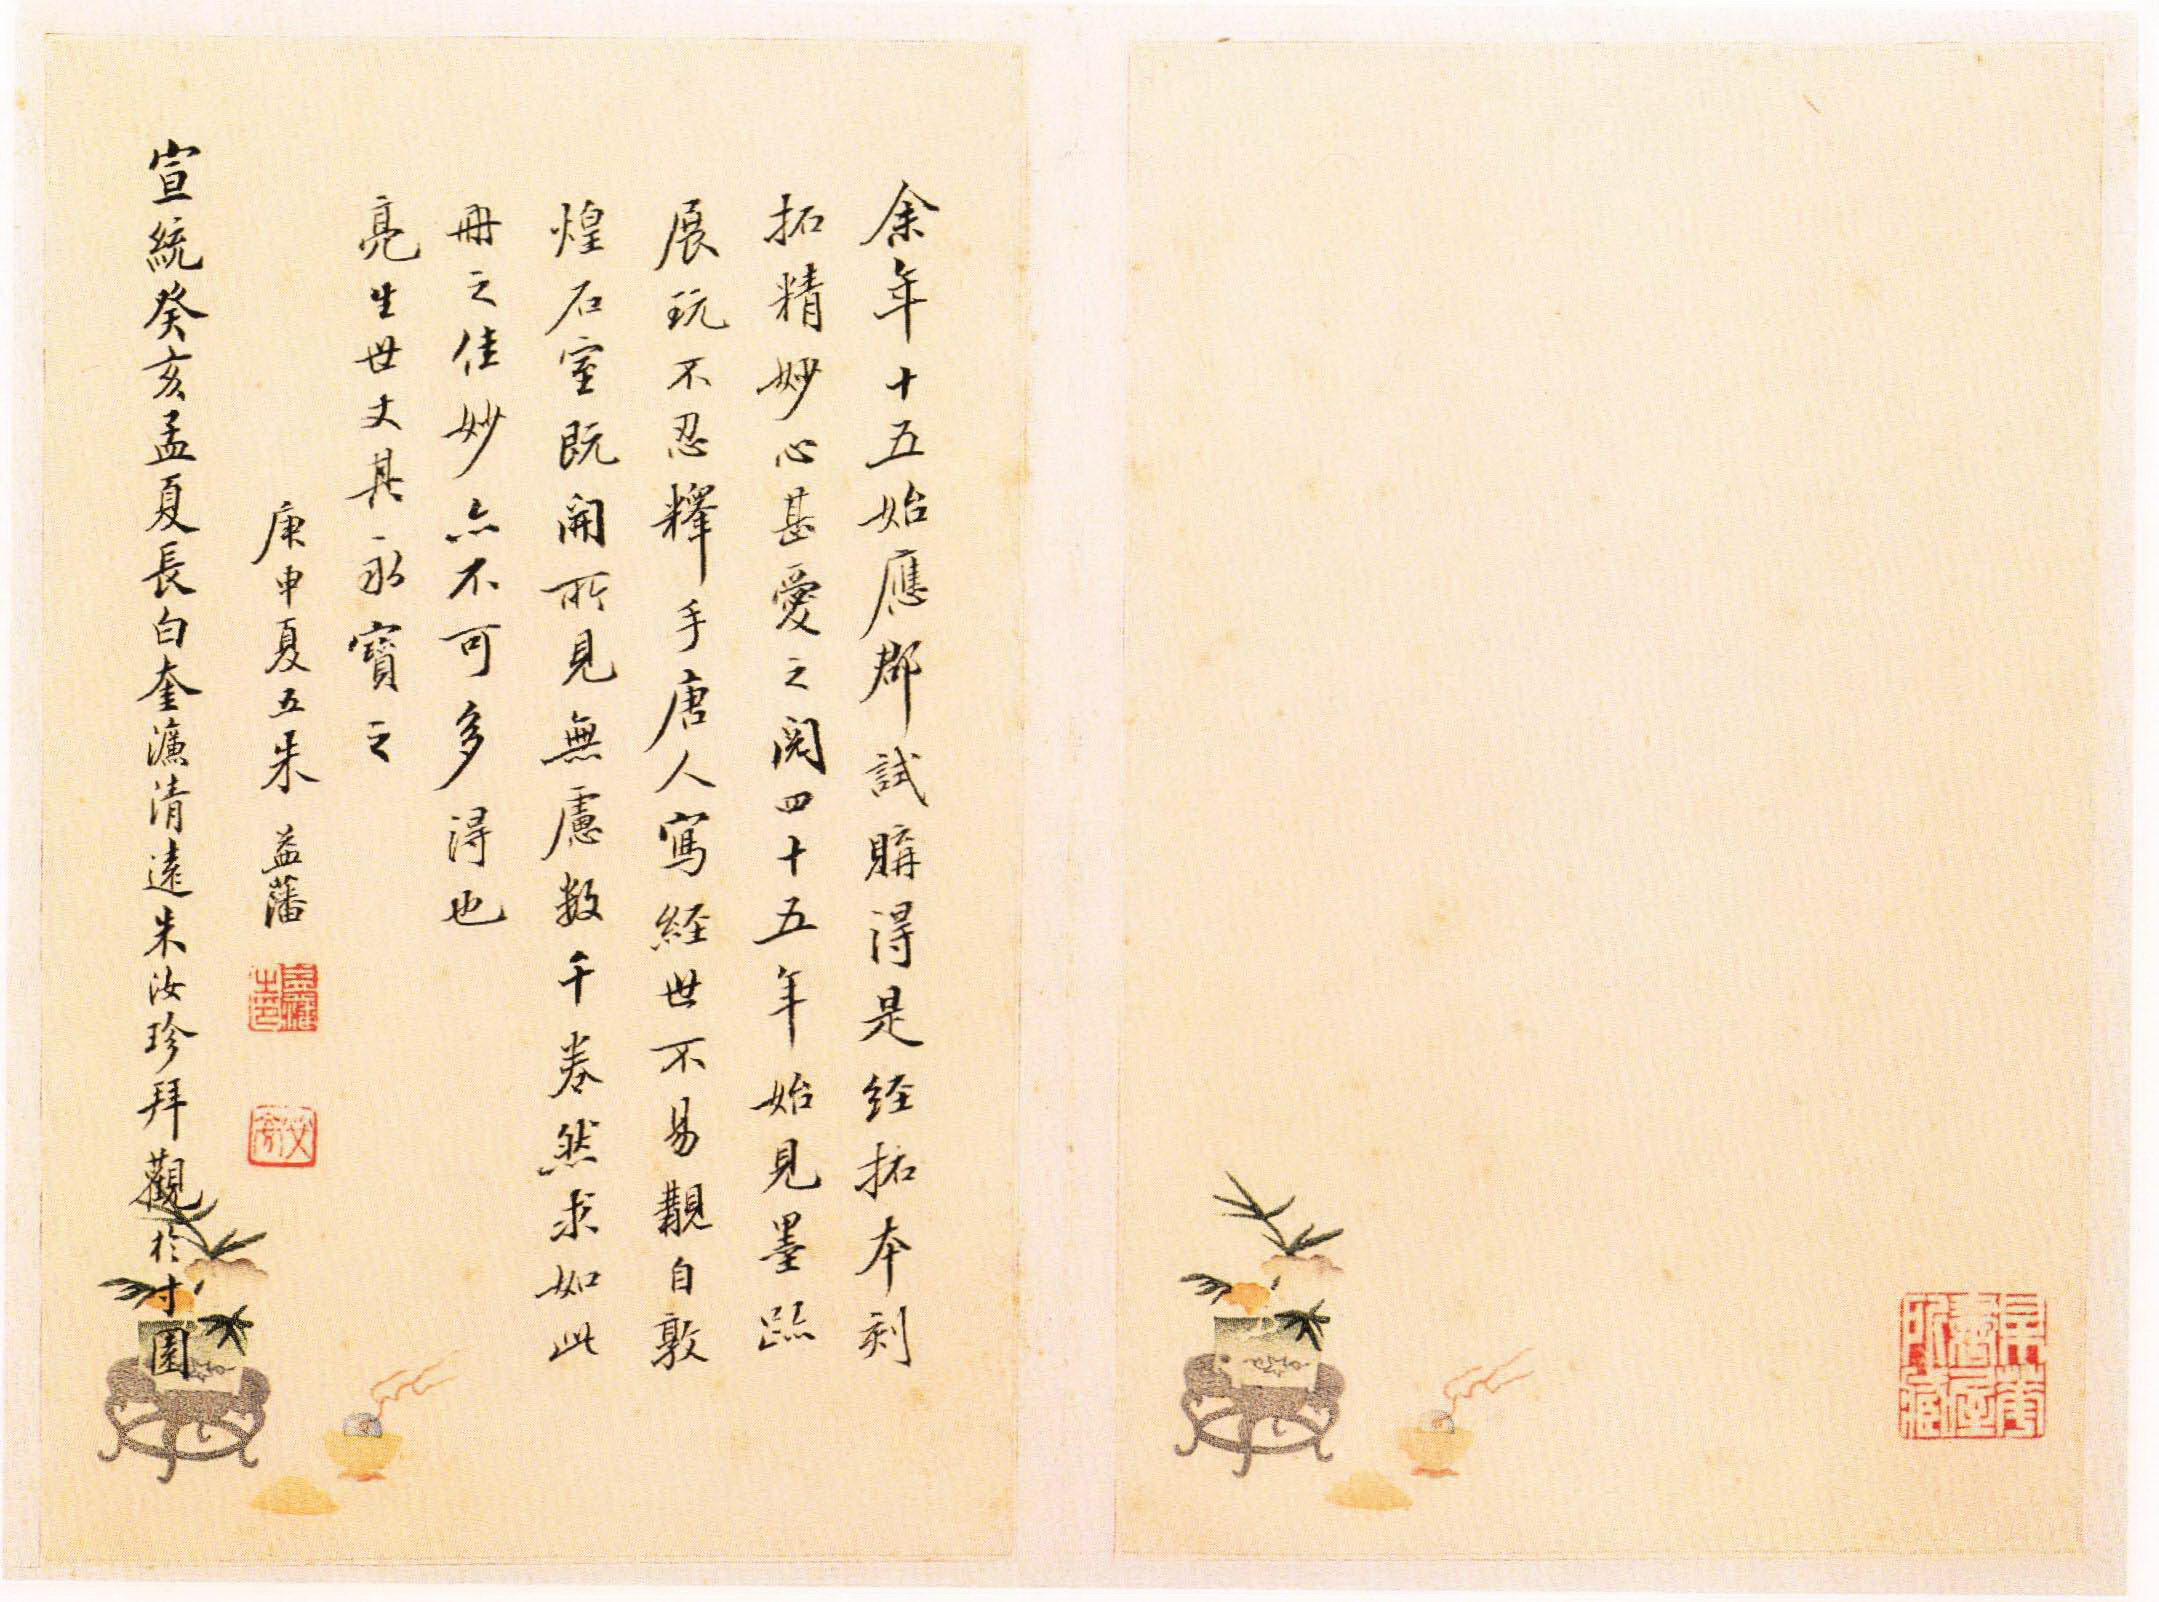 余年十五始應郡試購得是経拓本刻
拓精妙心甚愛之閱四十五年始見墨跡
展玩不忍釋手唐人寫経世不易覯自敦
煌石室既開所見無慮數千卷然求如此
冊之佳妙亦不可多得也
亮生世丈其永寶之
庚申夏五朱益藩
宣統癸亥孟夏長白奎濂清遠朱汝珍拜觀於寸園